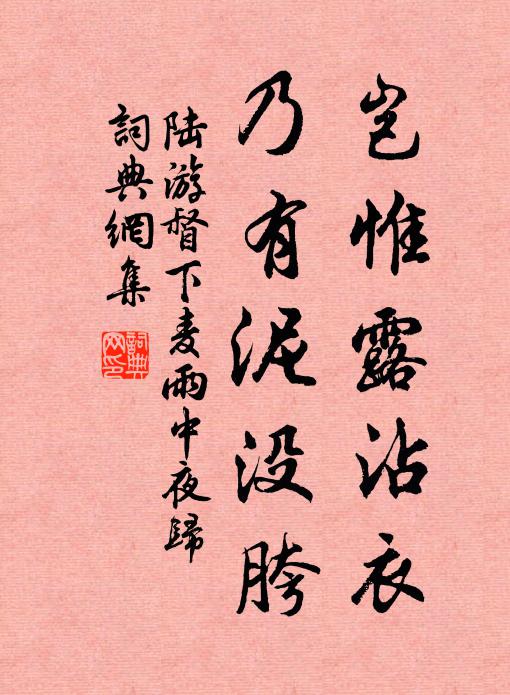 岂惟露沾衣
乃有泥没胯
陆游督下麦雨中夜歸
詞典網集
詞典网印